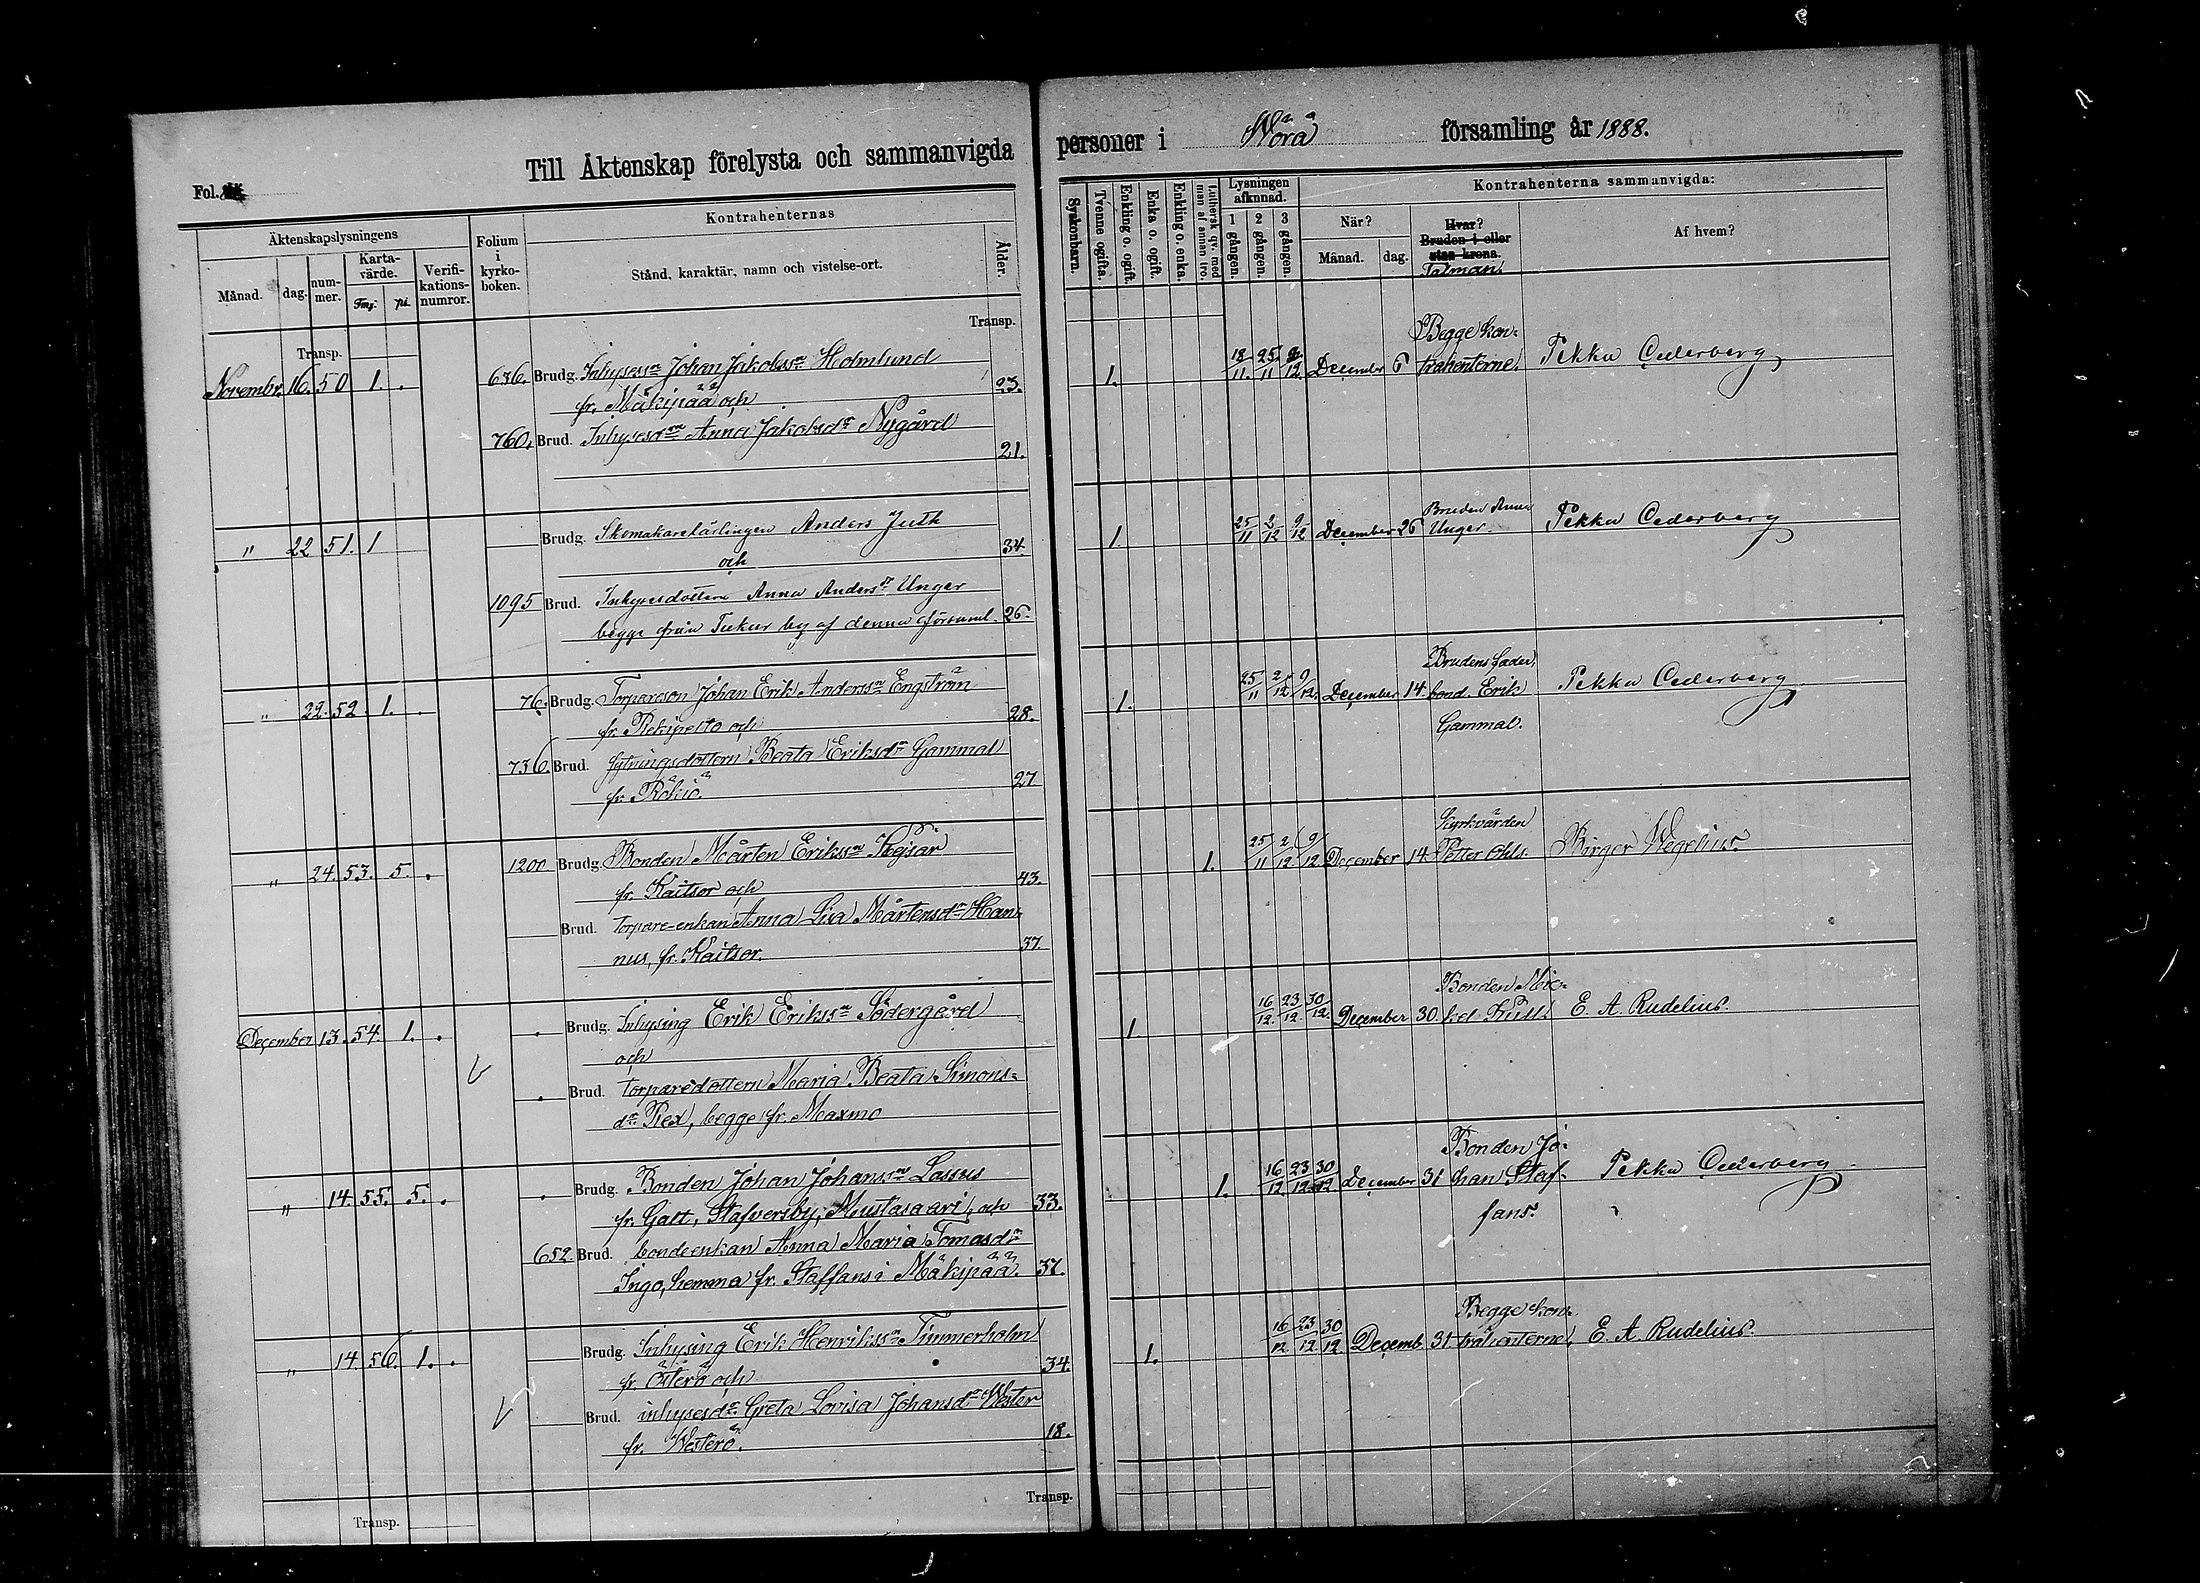 Till Äktenskap förelysta och sammanvigda personer i Wörå församling år 1888.
Fol.
Äktenskapslysningens
Månad.
dag.
num-
mer.
Karta-
värde.
Fmg.
pi.
Verifi-
kations-
numror.
Folium
i
kyrko-
boken.
Kontrahenternas
Stånd, karaktär, namn och vistelse-ort.
Ålder.
Syskonbarn.
Tvenne ogifta.
Enkling o. ogift.
Enka o. ogift.
Enkling o. enka.
Luthersk qv. med
man af annan tro.
Lysningen
afkunnad.
1 gången.
2 gången.
3 gången.
Kontrahenterna sammanvigda:
När?
Månad.
dag.
Hvar?
Bruden i eller
utan krona.
Talman.
Af hvem?
Transp.
Transp.
Novembr. 16. 50 1. . 636. Brudg. Inhysessn Johan Jakobssn Holmlund
fr. Mäkipää och 23.
760. Brud. Inhysesdn Anna Jakobsdr Nygård
21.
1. 18/11. 25/11 2/12. December 6 Begge kon-
trahenterne. Pekka Cederberg
" 22 51. 1 Brudg. Skomakarelärlingen Anders Juth
och 34.
1095 Brud. Inhysesdottern Anna Andersdr Unger
begge från Tuckur by af denna församl. 26.
1. 25/11 2/12 9/12 December 26 Bruden Anna
Unger. Pekka Cederberg
" 22. 52. 1. . 76. Brudg. Torpareson Johan Erik Anderssn Engström
fr. Rekipelto och 28.
736. Brud. Sytningsdottern Beata Eriksdr Gammal
fr. Rökiö 27
1. 25/11 2/12 9/12. December 14. Brudens fader,
bond. Erik
Gammal. Pekka Cederberg
" 24. 53. 5. . 1200. Brudg. Bonden Mårten Erikssn Kejsar
fr. Kaitsor och 43.
Brud. torpare-enkan Anna Lisa Mårtensdr Han-
nus, fr. Kaitsor. 37.
1. 25/11 2/12 9/12 December 14. Kyrkvärden
Petter Ohls. Birger Wegelius.
December 13. 54. 1. . . Brudg. Inhysing Erik Erikssn Södergård
och
. Brud. torparedottern Maria Beata Simons-
dr Rex, begge fr. Maxmo
1. 16/12. 23/12 30/12. December 30 Bonden Mic-
kel Kull. E. A. Rudelius.
" 14. 55. 5. . . Brudg. Bonden Johan Johanssn Lassus
fr. Galt, Stafversby, Mustasaari, och 33.
652. Brud. bondeenkan Anna Maria Tomasdr
Ingo, hemma fr. Staffans i Mäkipää. 37.
1. 16/12. 23/12. 30/12. December 31 Bonden Jo-
han Staf-
fans. Pekka Cederberg
" 14. 56. 1. . Brudg. Inhysing Erik Henrikssn Timmerholm
fr. Österö och 34.
Brud. inhysesdr Greta Lovisa Johansdr Wester
fr. Westerö. 18.
1. 16/12 23/12 30/12 Decemb. 31. Begge kon-
trahenterne. E. A. Rudelius.
Transp.
Transp.